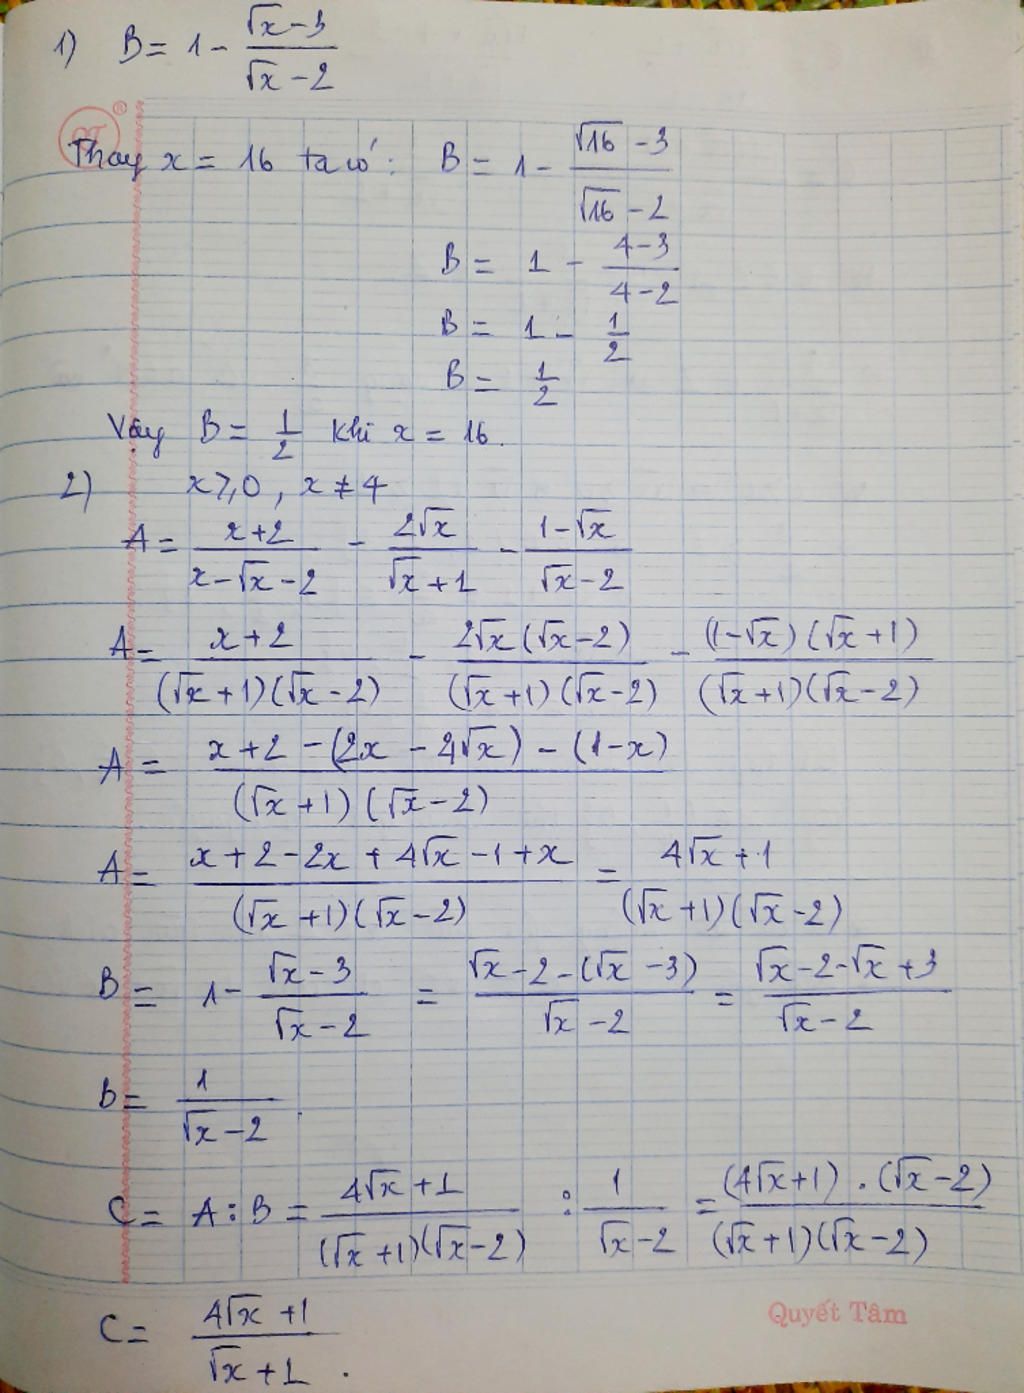 1) B = 1 - (√x - 3)/(√x - 2)
Thay x = 16 ta có: B = 1 - (√16 - 3)/(√16 - 2)
B = 1 - (4-3)/(4-2)
B = 1 - 1/2
B = 1/2
Vậy B = 1/2 khi x = 16.
2) x ≥ 0, x ≠ 4
A = (x+2)/(x-√x-2) - 2√x/(√x+1) - (1-√x)/(√x-2)
A = (x+2)/((√x+1)(√x-2)) - 2√x(√x-2)/((√x+1)(√x-2)) - (1-√x)(√x+1)/((√x+1)(√x-2))
A = (x+2-(2x-4√x)-(1-x))/((√x+1)(√x-2))
A = (x+2-2x+4√x-1+x)/((√x+1)(√x-2)) = (4√x+1)/((√x+1)(√x-2))
B = 1 - (√x-3)/(√x-2) = (√x-2-(√x-3))/(√x-2) = (√x-2-√x+3)/(√x-2)
B = 1/(√x-2)
C = A : B = (4√x+1)/((√x+1)(√x-2)) : 1/(√x-2) = (4√x+1).(√x-2)/((√x+1)(√x-2))
Quyết Tâm
C = (4√x+1)/(√x+1).